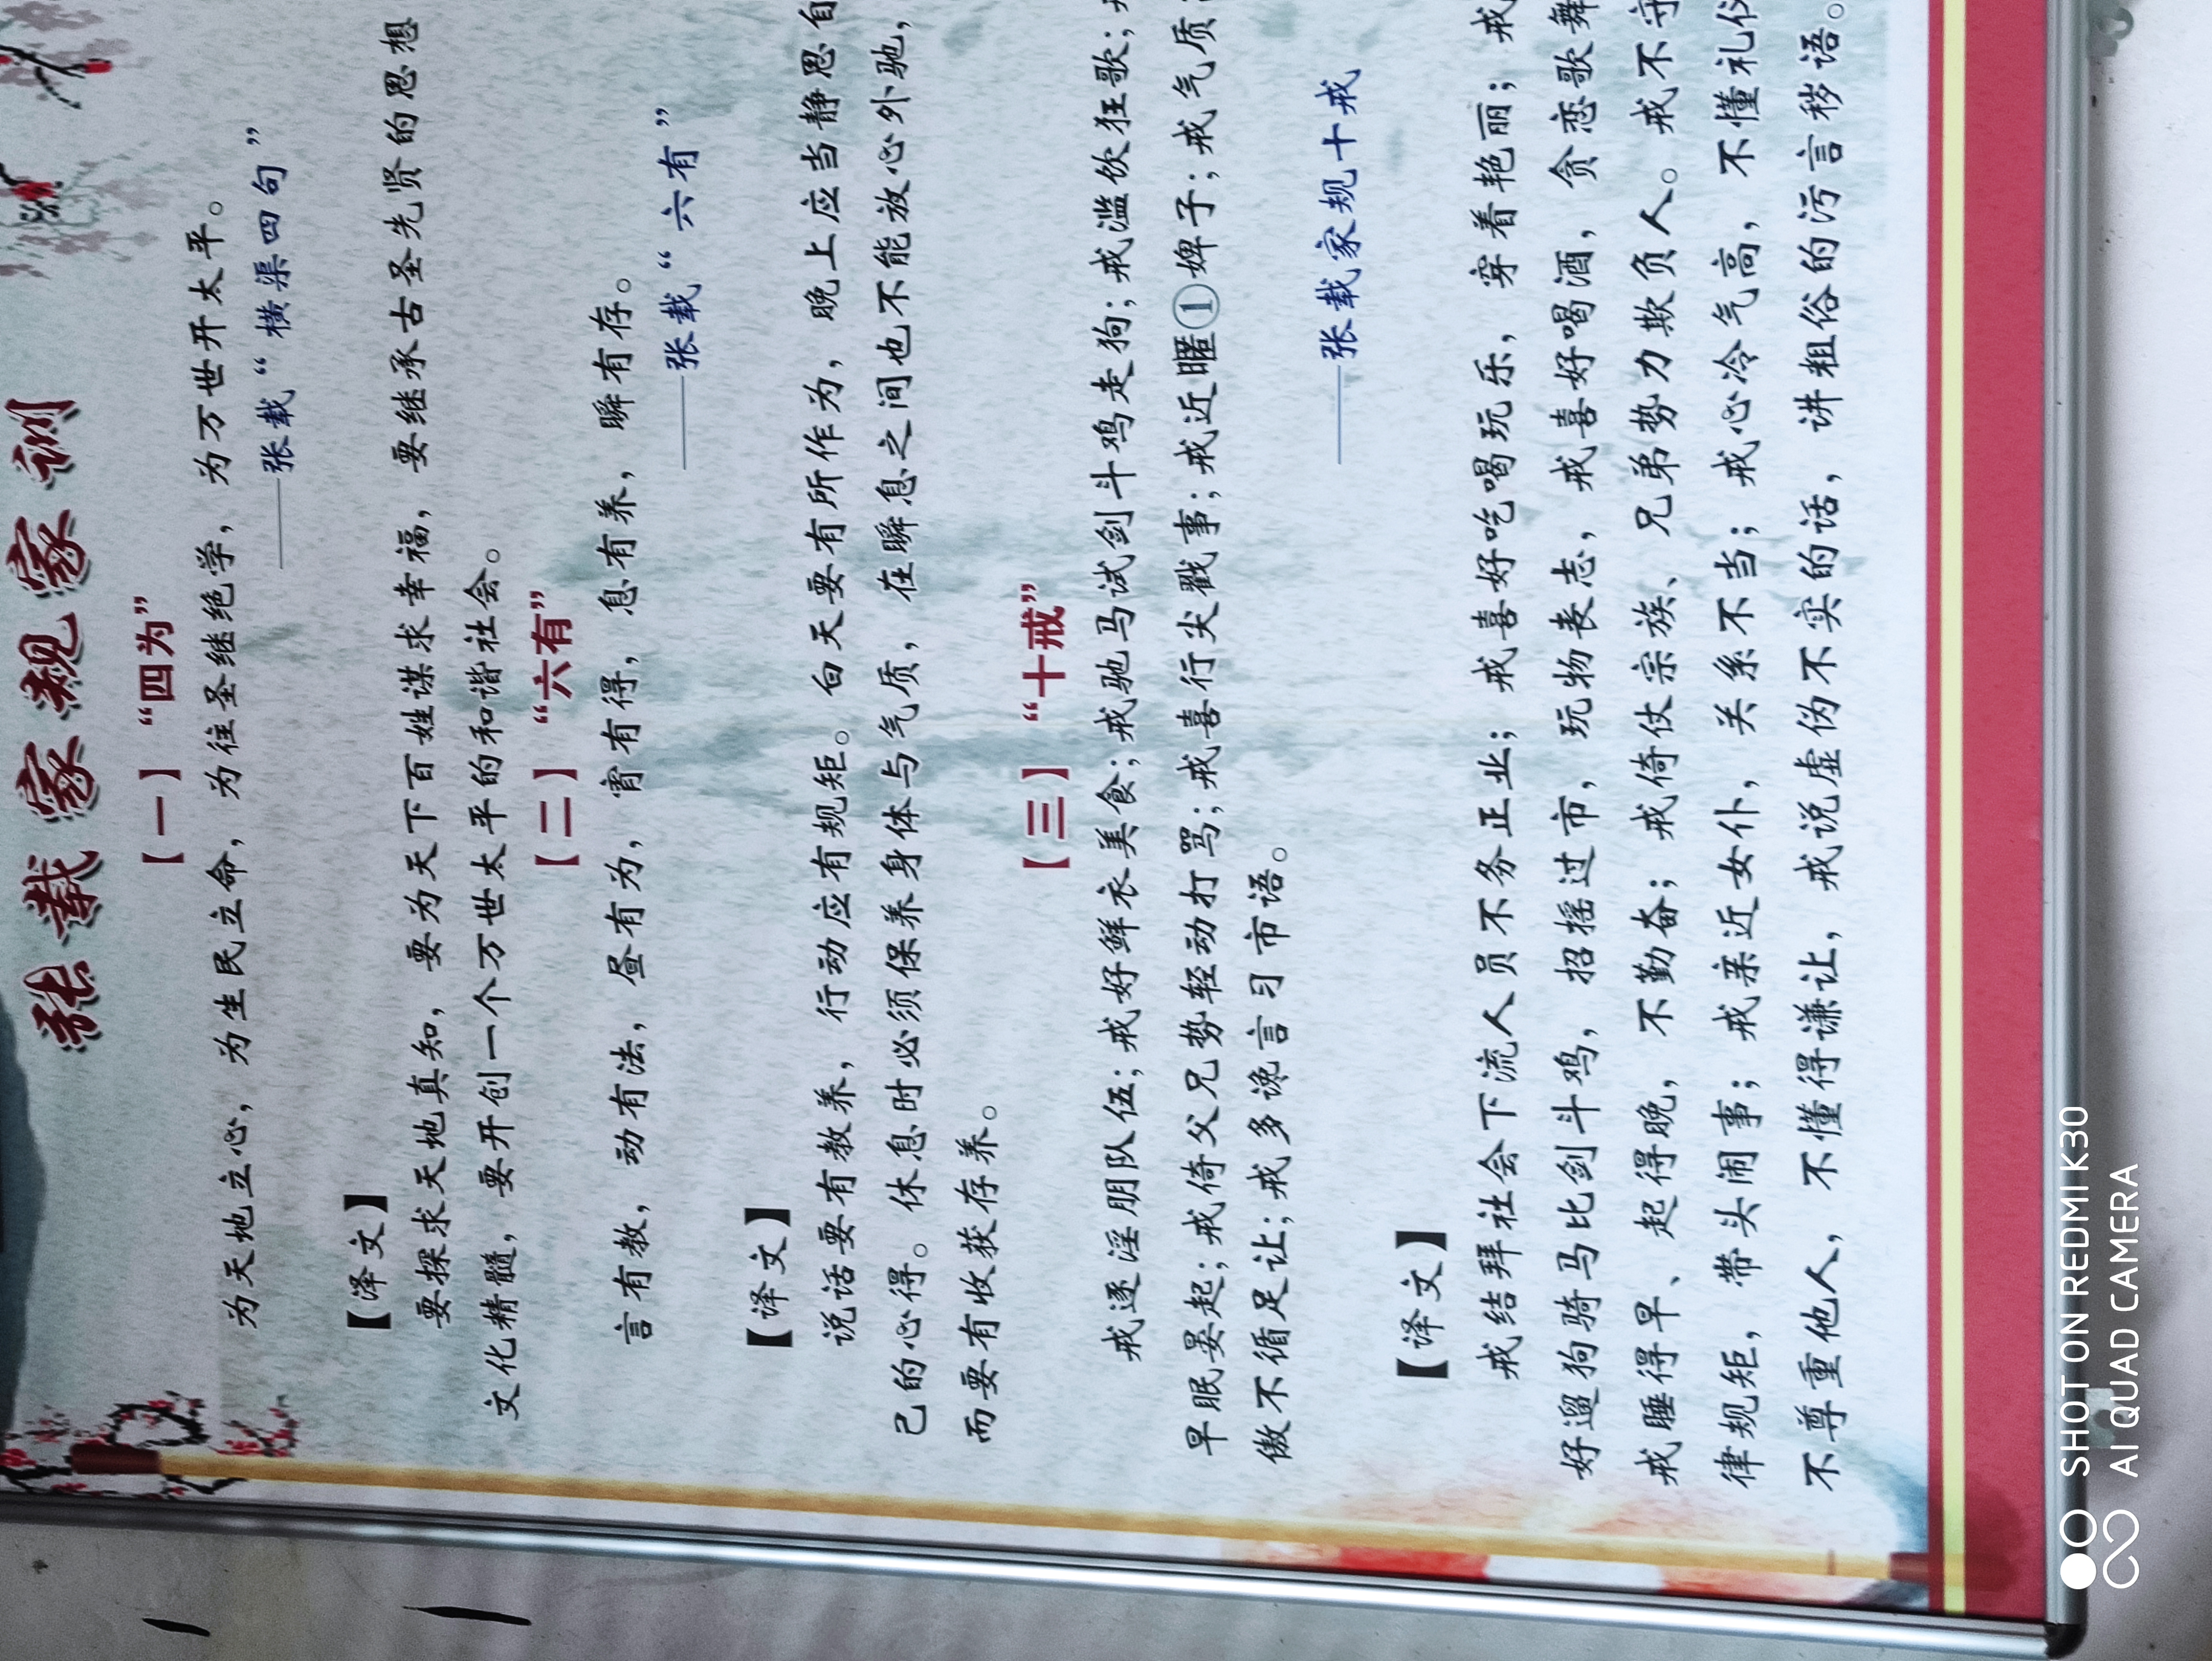 张载家规家训
【一】“四为”
为天地立心，为生民立命，为往圣继绝学，为万世开太平。
——张载“横渠四句”
【译文】
要探求天地真知，要为天下百姓谋求幸福，要继承古圣先贤的思想
文化精髓，要开创一个万世太平的和谐社会。
【二】“六有”
言有教，动有法，昼有为，宵有得，息有养，瞬有存。
——张载“六有”
【译文】
说话要有教养，行动应有规矩。白天要有所作为，晚上应当静思自
己的心得。休息时必须保养身体与气质，在瞬息之间也不能放心外驰，
而要有收获存养。
【三】“十戒”
戒逐淫朋队伍；戒好鲜衣美食；戒驰马试剑斗鸡走狗；戒滥饮狂歌；
早眠晏起；戒倚父兄势轻动打骂；戒喜行尖戳事；戒近暱①婢子；戒气质
傲不循足让；戒多谗言习市语。
——张载家规十戒
【译文】
戒结拜社会下流人员不务正业；戒喜好吃喝玩乐，穿着艳丽；戒
好遛狗骑马比剑斗鸡，招摇过市，玩物丧志，戒喜好喝酒，贪恋歌舞
戒睡得早、起得晚，不勤奋；戒倚仗宗族、兄弟势力欺负人。戒不守
律规矩，带头闹事；戒亲近女仆，关系不当；戒心冷气高，不懂礼仪
不尊重他人，不懂得谦让，戒说虚伪不实的话，讲粗俗的污言秽语。
SHOT ON REDMI K30
AI QUAD CAMERA